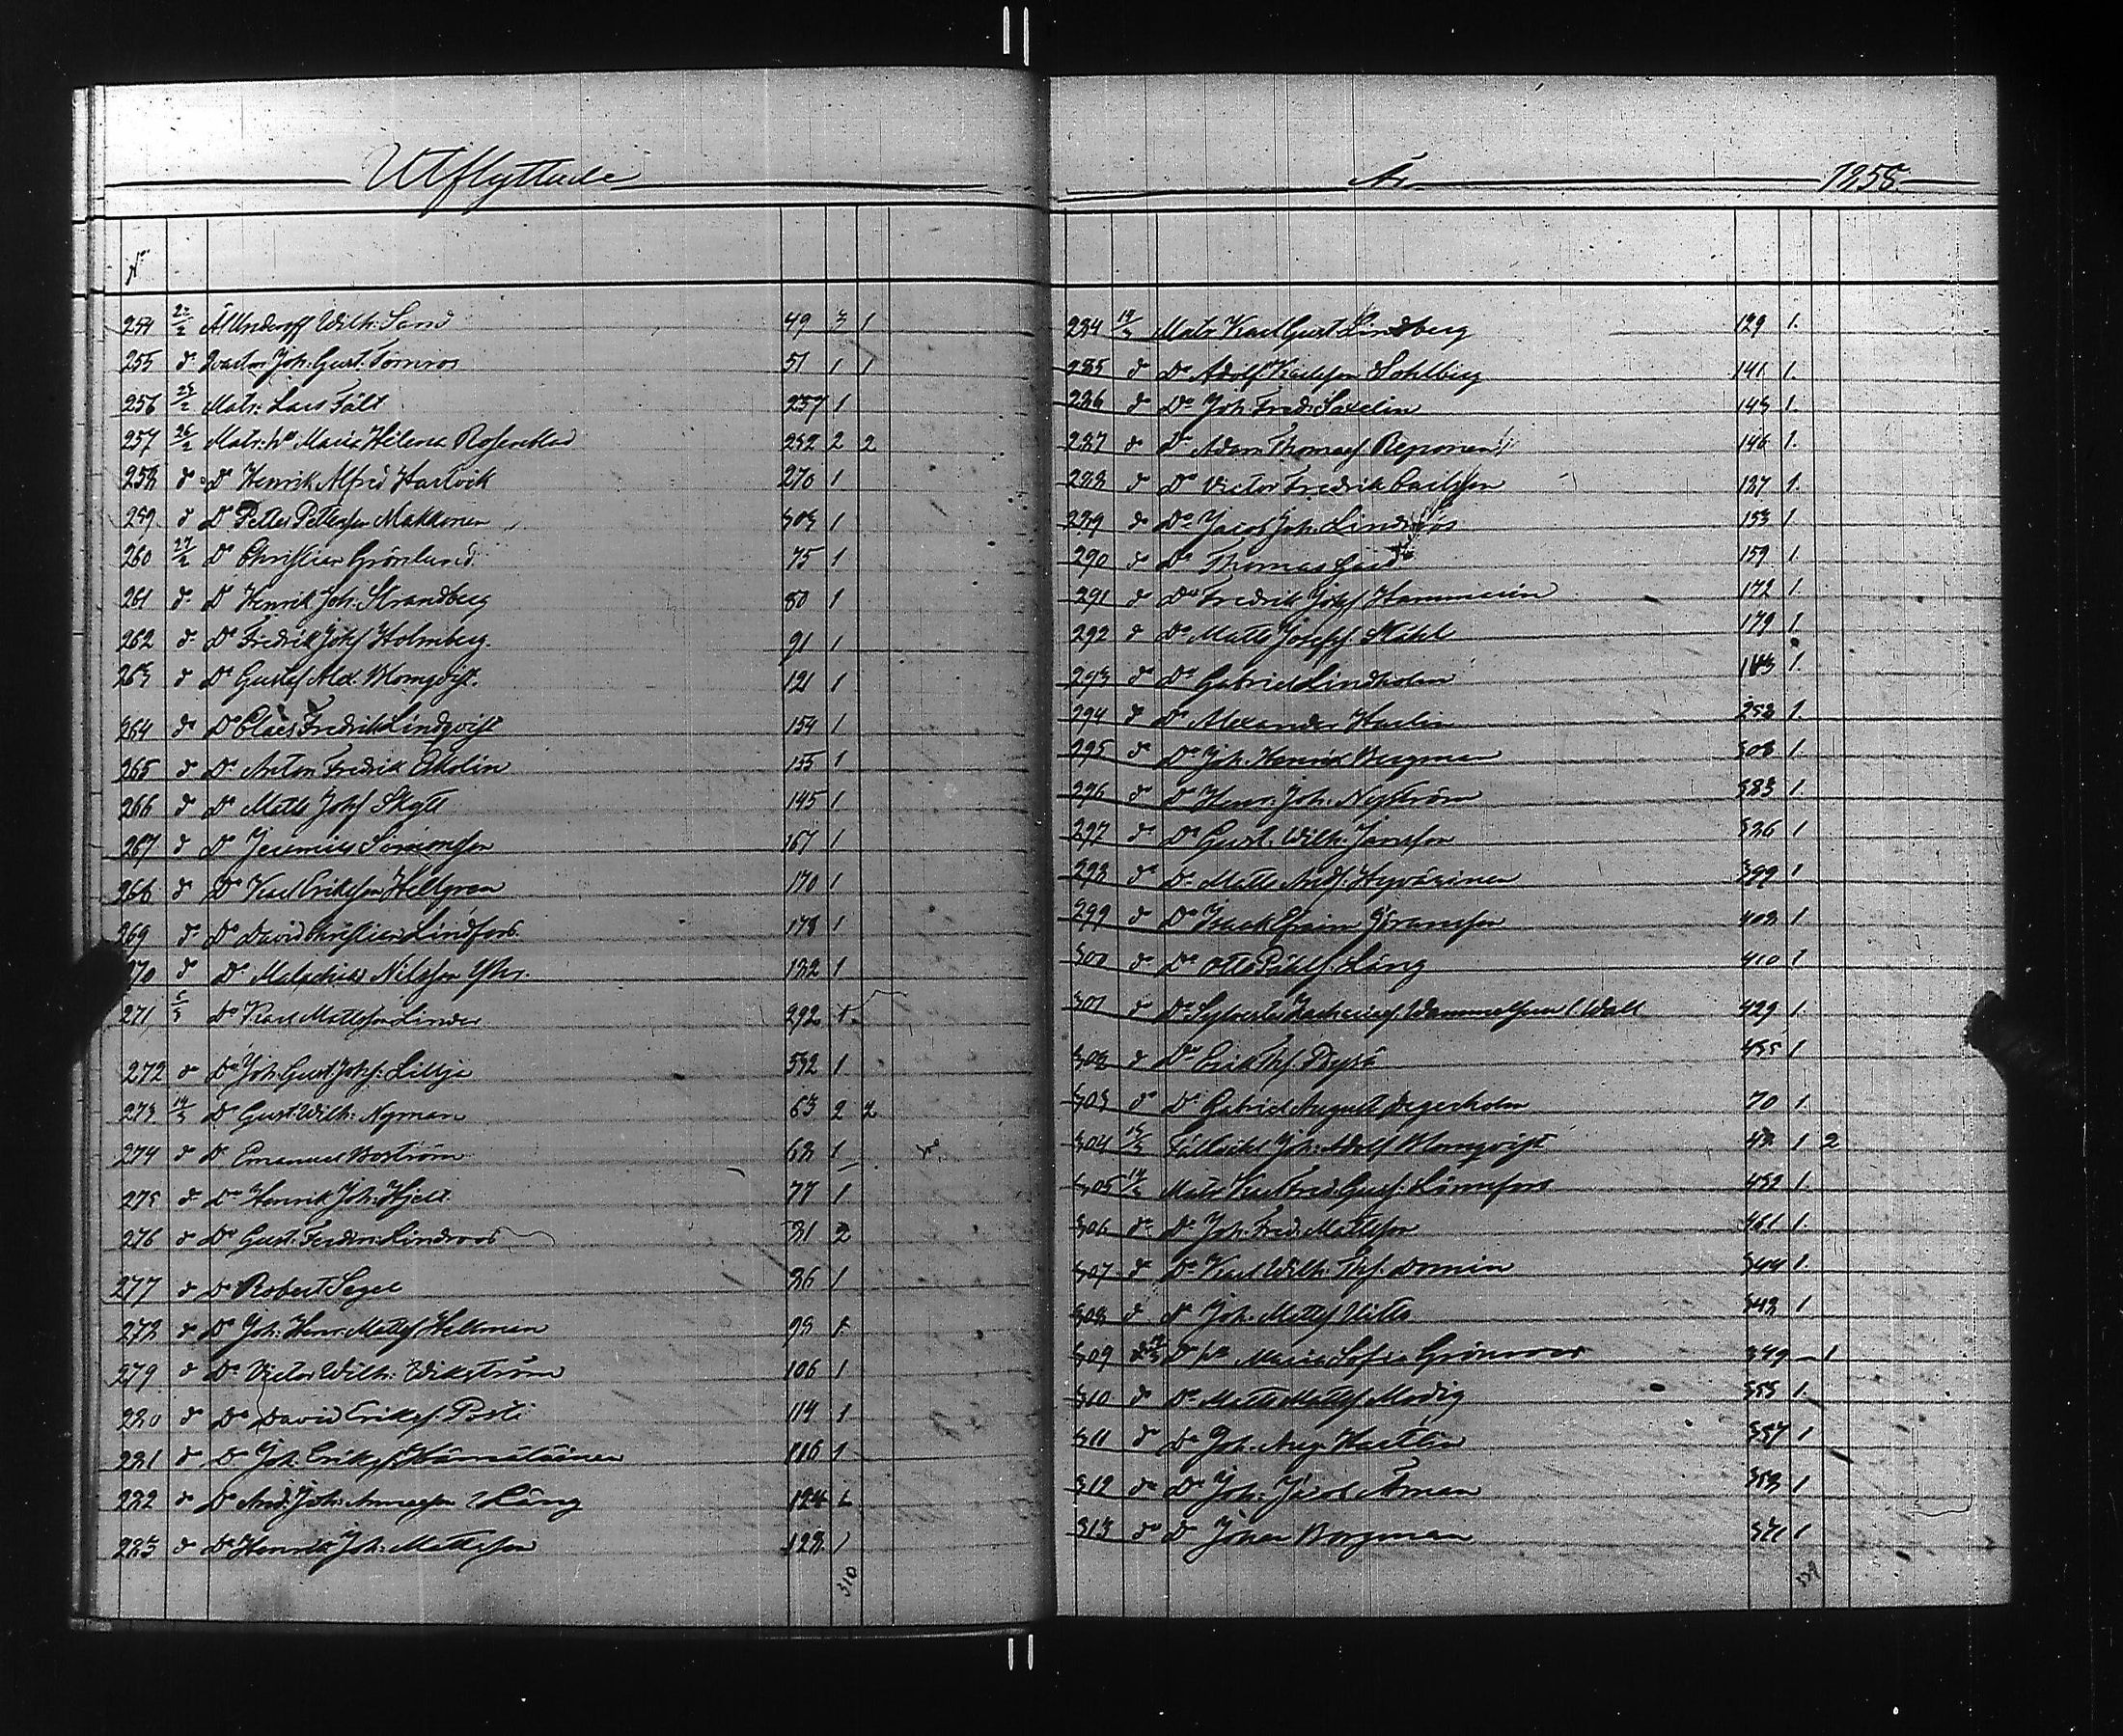 Utflyttade
No
254 22/2 Al Underoff Wilh: Sand 49 3 1
255 do Joh. Gust. Törnros 51 1 1
256 25/2 Matr: Lars Fält 257 1
257 26/2 Matr: ha Maria Helena 252 2 2
258 do Do Henrik Alfred Hartvik 270 1
259 do Do Petter Pettersson Makkonen 303 1
260 27/2 Do Christian Grönlund 75 1
261 do Do Henrik Joh. Strandberg 80 1
262 do Do Fredrik Johsf Holmberg 91 1
263 do Do Gustaf Alex. Blomqvist 121 1
264 do Do Claes Fredrik Lindqvist 154 1
265 do Do Anton Fredrik Ekolin 155 1
266 do Do Matts Johsf Skytt 145 1
267 do Do Jeremias Simonsson 167 1
268 do Do Karl Eriksson Hellgren 170 1
269 do Do David Christian Lindfors 178 1
270 do Do Malachias Nilsson 182 1
271 5/3 Do Karl Mattsson Linder 292 1
272 do Do Joh. Gust Johsf. Lillja 592 1
273 14/3 Do Gust Wilh: Nyman 63 2 2
274 do Do Emanuel Boström 68 1
275 do Do Henrik Joh. Hjelt 77 1
276 do Do Gust. Ferdin. Lindroos 81 2
277 do Do Robert Segel 86 1
278 do Do Joh. Henr. Mattsf Hellmin 98 1
279 do Do Victor Wilh: Wikström 106 1
280 do Do David Eriksf Posti 114 1
281 do Do Joh. Eriksf Hämäläinen 116 1
282 do Do And. Joh. Lång 124 1
283 do Do Henrik Joh. Mattsson 128 1
310
År 1858
284 14/3 Matr Karl Gust Lindberg 129 1.
285 do Do Adolf Karlsson Sohlberg 141 1.
286 do Do Joh. Fredr. Saxelin 143 1.
287 do Do Adam Thomasf Reponen 146 1.
288 do Do Victor Fredrik Carlsson 137 1.
289 do Do Jacob Joh. Lindroos 153 1
290 do Do Thomas 159 1
291 do Do Fredrik Johsf Hammarén 172 1.
292 do Do Matts Josefsf Ståhl 179 1.
293 do Do Gabriel Lindholm 183 1.
294 do Do Alexander Harlin 258 1.
295 do Do Joh. Henrik Bergman 308 1.
296 do Do Henr. Joh. Nyström 383 1.
297 do Do Gust. Wilh. Jansson 326 1
298 do Do Matts Andsf Hyvärinen 399 1
299 do Do Isaak Efraim Göransson 408 1.
300 do Do Otto Påhlsf. Lång 410 1
301 do Do Sylvester Zachariesf Wammelsuu l. Wall 429 1.
302 do Do Erik 435 1
303 do Do Gabriel August Segerholm 70 1.
304 Joh. Adolf Blomqvist 42 1 2
305 14/3 Matr Karl Fred. Gustsf. Lönnfors 452 1.
306 do Do Joh. Fred. Mattsson 461 1.
307 do Do Karl Wilh. Domin 344 1.
308 do Do Joh. Mattsf 342 1
309 do Do ha Maria Sofia Grönroos 349 – 1
310 do Do Matts Mattsf Modig 355 1.
311 do Do Joh. Aug. Hartlin 357 1
312 do Do Joh. Jacob Åman 358 1
313 do Do Johan Borgman 371 1